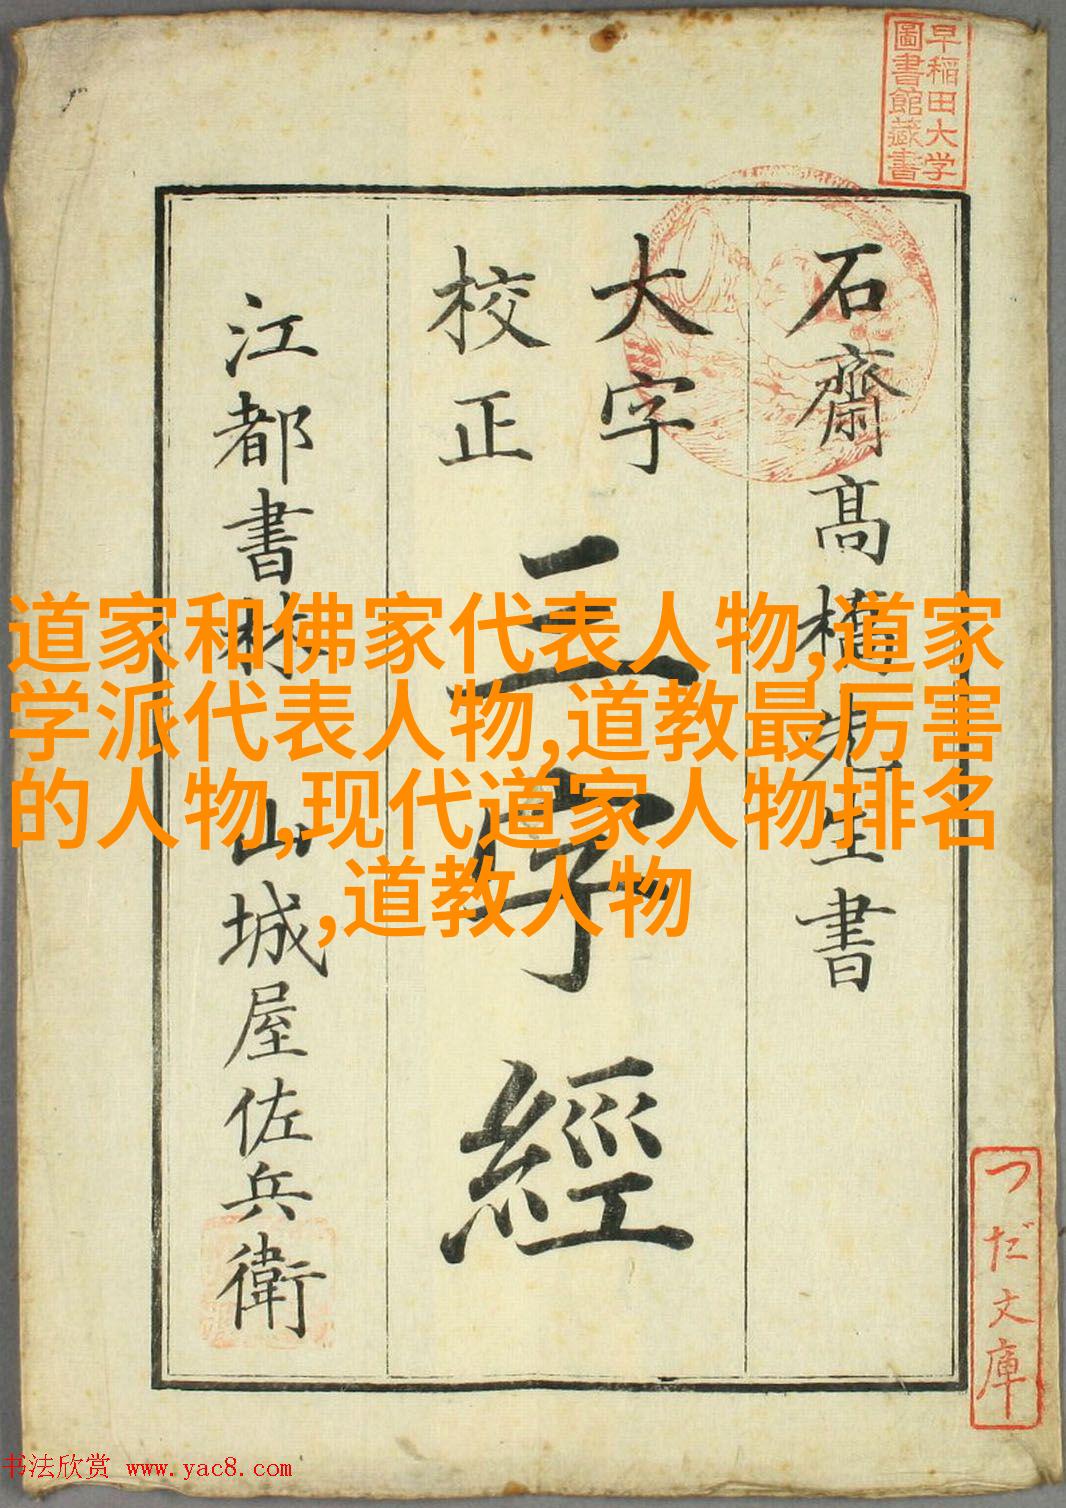 早稲田大学
圖書館藏書
石齋髙橋先生書
大字
校正
三字經
江都書林 山城屋佐兵衛
道家和佛家代表人物,道家
学派代表人物,道教最厉害
的人物,现代道家人物排名
,道教人物
つだ文庫
书法欣赏 www.yac8.com